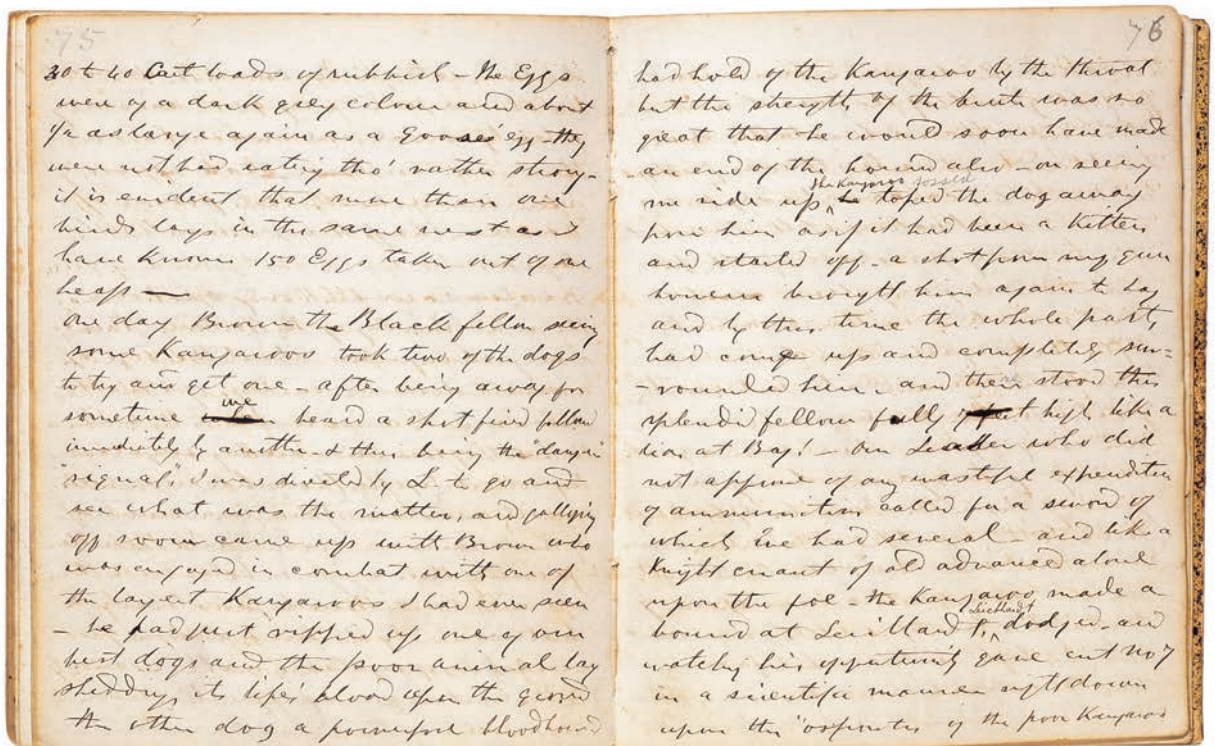 75
30 to 40 Cart loads of rubbish - The Eggs
were of a dark grey colour and about
1/2 as large again as a Goose's egg - they
were not bad eating tho' rather strong -
it is evident that more than one
birds lays in the same nest as I
have known 150 Eggs taken out of one
heap —
One day Brown the Black fellow seeing
some Kangaroos took two of the dogs
to try and get one - after being away for
sometime we heard a shot fired follow
immediately by another & this being the "danger"
"signal", I was directed by L to go and
see what was the matter, and galloping
off soon came up with Brown who
was engaged in combat with one of
the largest Kangaroos I had ever seen
- he had just ripped up one of our
best dogs and the poor animal lay
shedding its life's blood upon the ground
the other dog a powerful bloodhound
76
had hold of the Kangaroo by the throat
but the strength of the brute was so
great that he would soon have made
an end of the hound also - on seeing
the Kangaroo tossed
me ride up he toped the dog away
from him as if it had been a Kitten
and started off - a shot from my gun
however brought him again to bay
and by this time the whole party
had come up and completely sur=
-rounded him - and there stood this
splendid fellow fully feet high like a
lion at Bay! - Our Leader who did
not approve of any wastful expenditure
of ammunition called for a sword of
which we had several - and like a
Knight errant of old advanced alone
upon the foe - the Kangaroo made a
Leichhardt
bound at Leichhardt, dodged - and
watching his oppertunity gave cut No 7
in a scientific manner right down
upon the of the poor Kangaroo